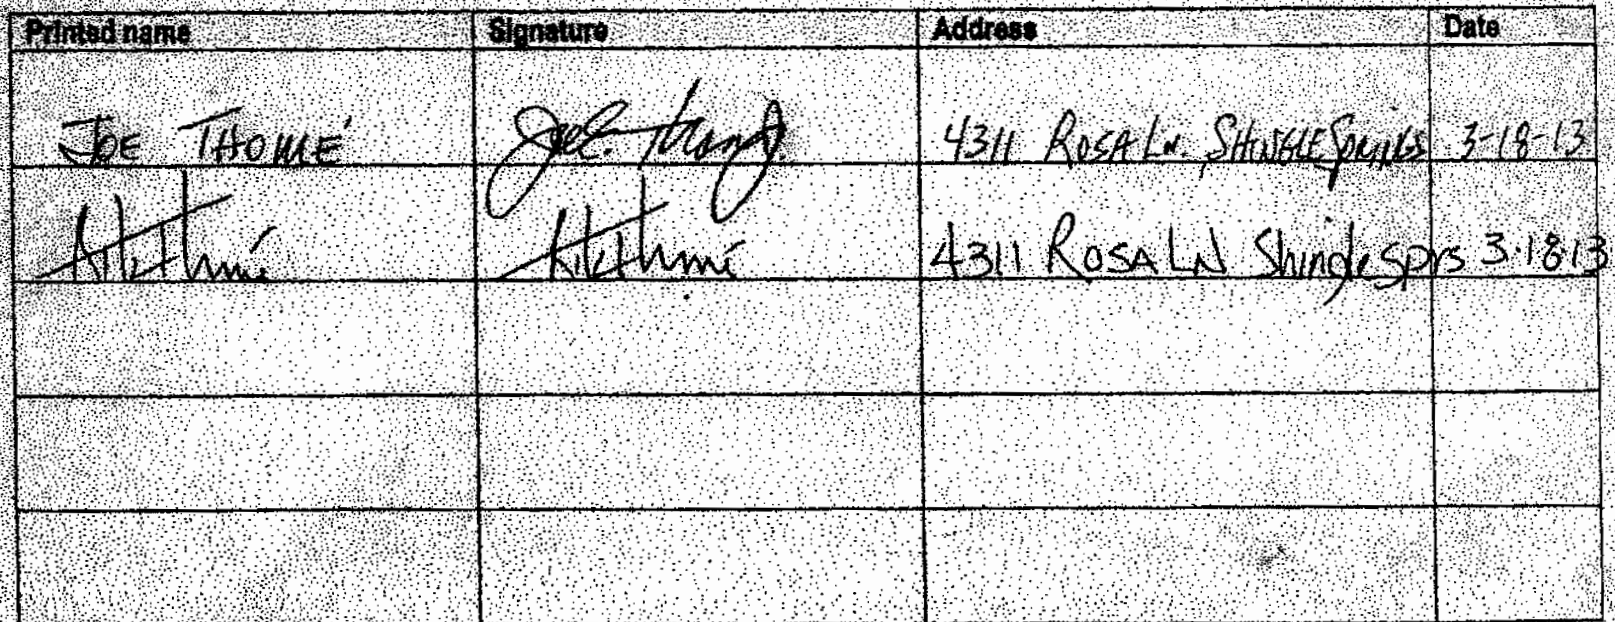 Printed name Signature Address Date
JOE THOMÉ 4311 ROSA LN. SHINGLE SPRINGS 3-18-13
4311 ROSA LN Shingle Sprs 3.18.13